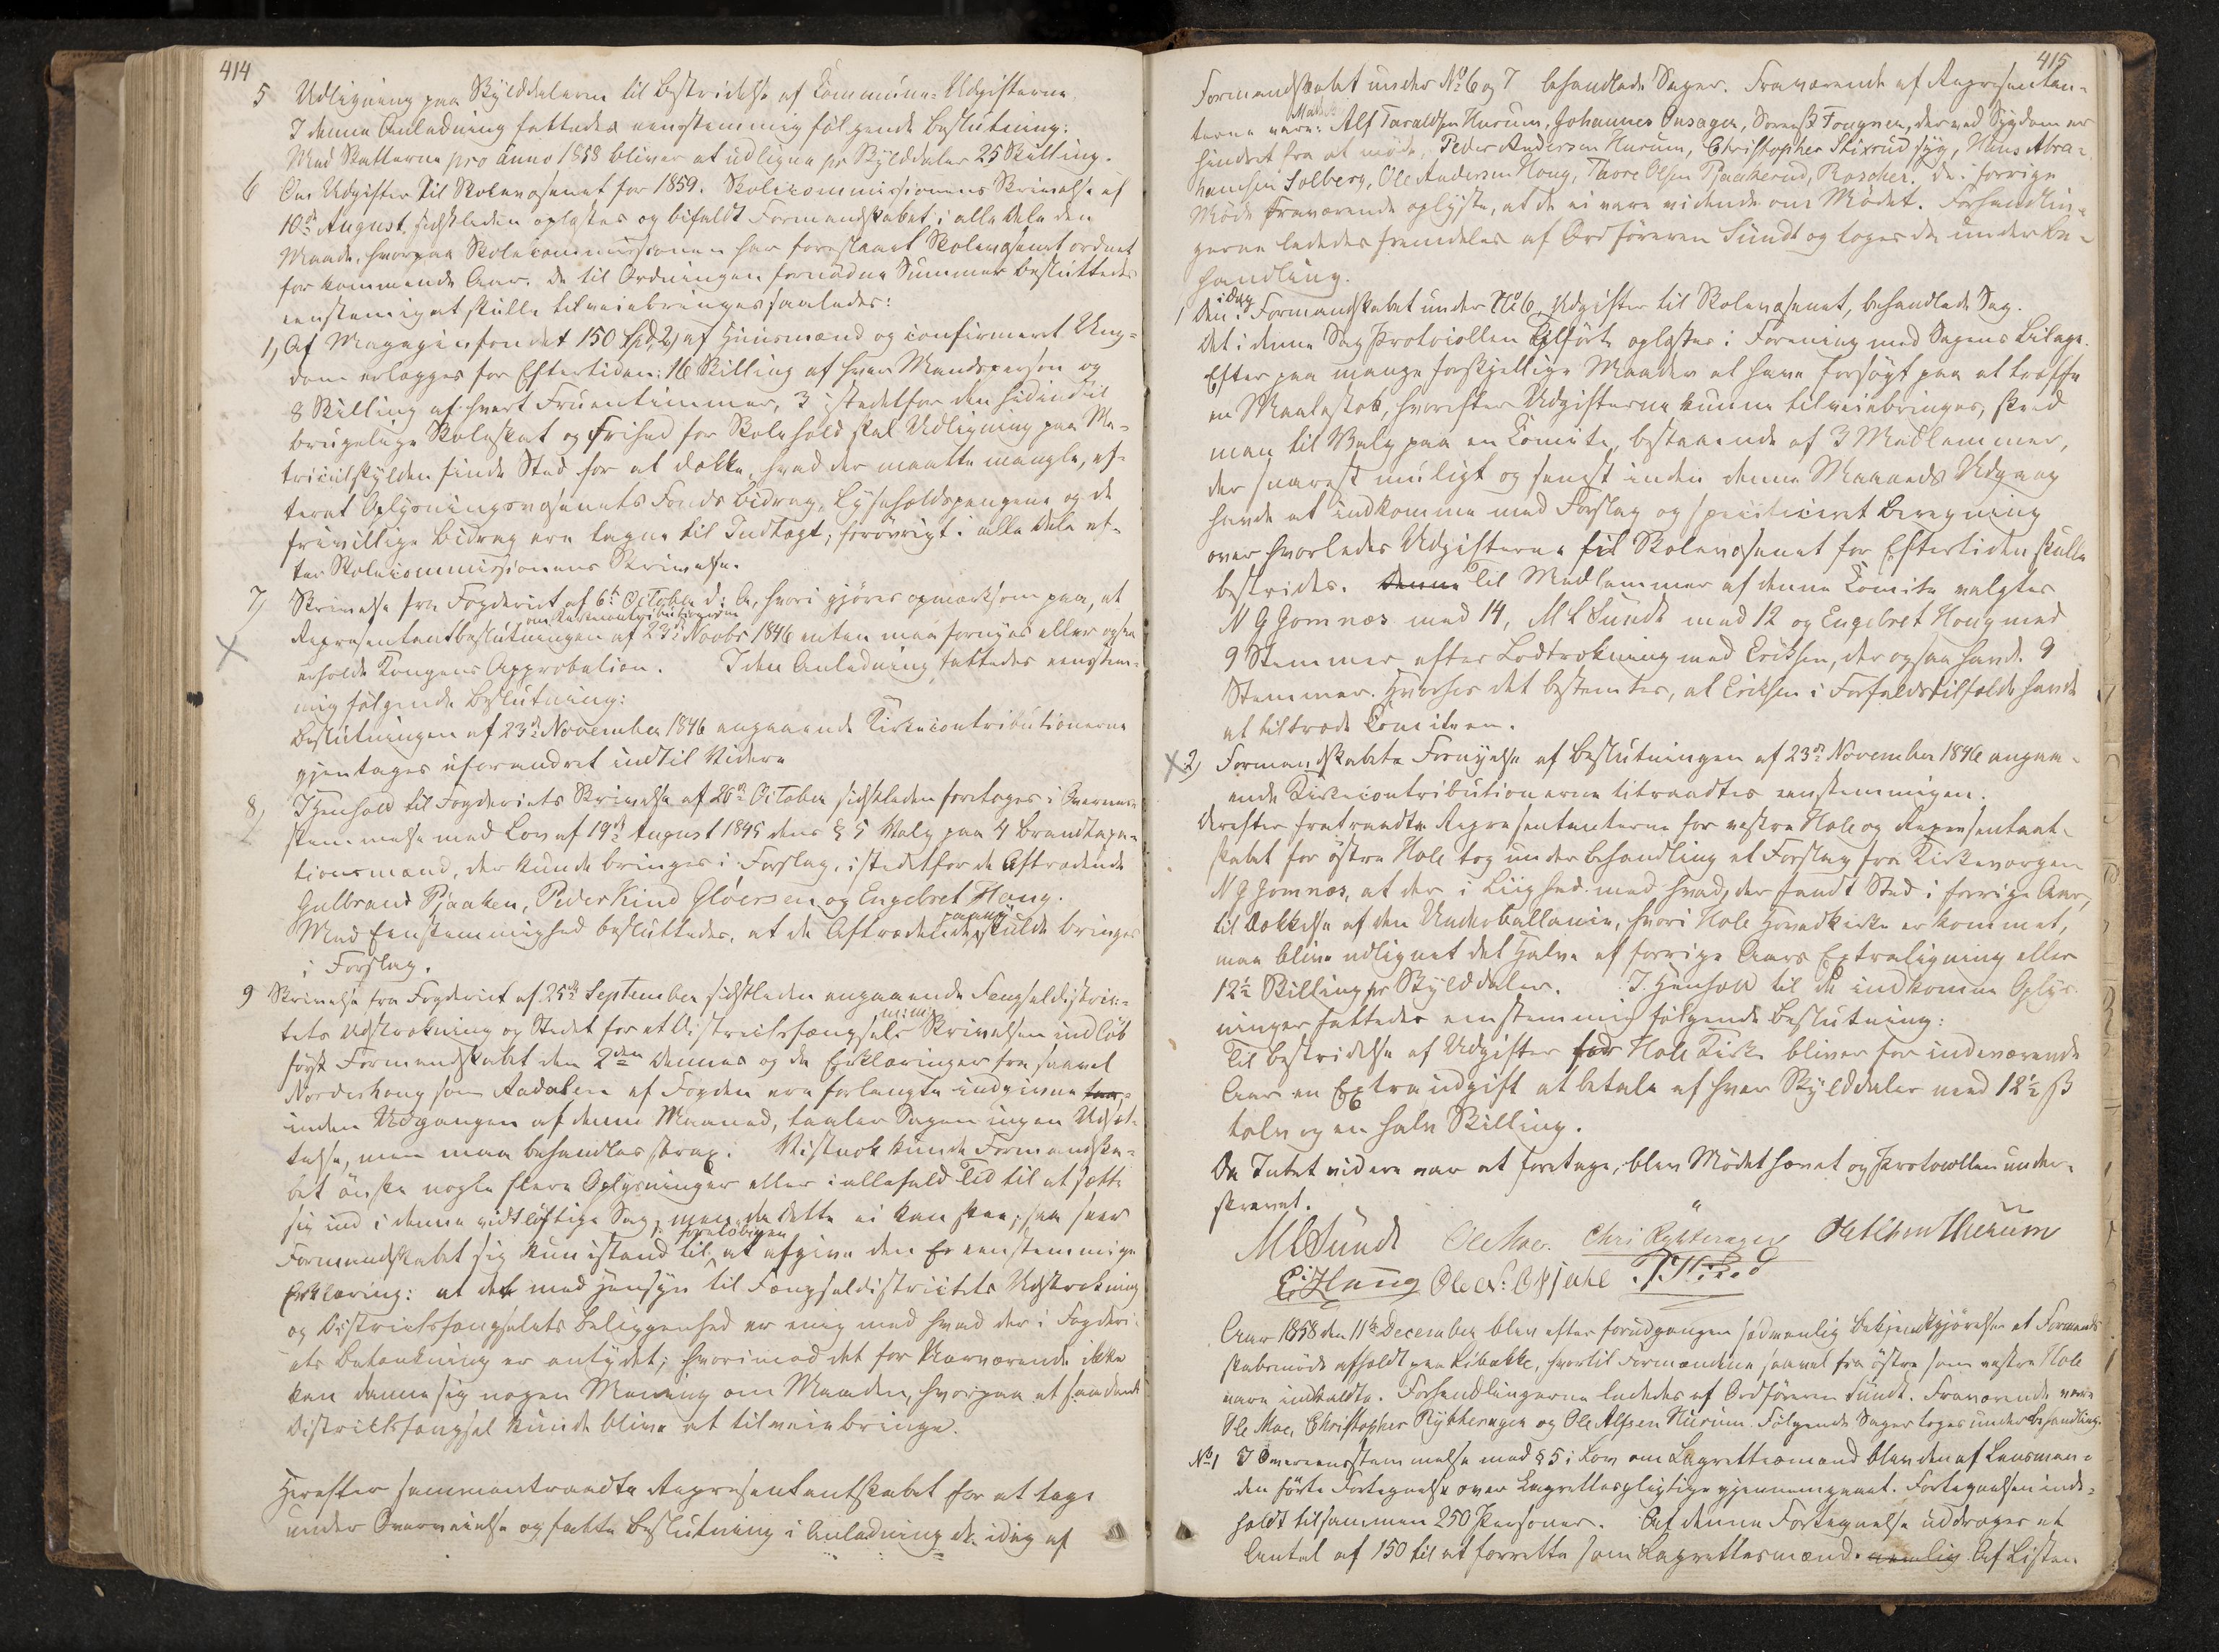 414
5 Udligning paa Skylddaleren til Bestridelse af Commune-Udgifterne.
I denne Anledning fattedes eenstemmig følgende Beslutning:
Med Skatterne pro anno 1858 bliver at udligne pr Skylddaler 25 Skilling.
6 Om Udgifter til Skolevæsenet for 1859. Skolecommissionens Skrivelse af
10de August sidstleden oplæstes og bifaldt Formandskabet i alle Dele den
Maade, hvorpaa Skolecommissionen har foreslaaet Skolevæsenet ordnet
for kommende Aar. De til Ordningen fornødne Summer besluttedes
eenstemig at skulle tilveiebringes saaledes:
1, Af Magazinfondet 150 Spd, 2, af Huusmænd og confirmeret Ung-
dom erlægges for Eftertiden: 16 Skilling af hver Mandsperson og
8 Skilling af hvert Fruentimmer, 3 istedetfor den hidindtil
brugelige Skoleskat og Frihed for Skolehold skal Udligning paa Ma-
triculskylden finde Sted for at dække, hvad der maatte mangle, ef-
terat Oplysningsvæsenets Fonds Bidrag, Lyseholdspengene og de
frivillige Bidrag ere tagne til Indtægt; forøvrigt i alle Dele ef-
ter Skolecommissionens Skrivelse.
7, Skrivelse fra Fogderiet af 6te October d: A, hvori gjøres opmærksom paa, at
om Kirkecontributionerne
Repræsentantbeslutningen af 23de Novbr 1846 enten maa fornyes eller ogsaa
erholde Kongens Approbation. I den Anledning fattedes eenstem-
mig følgende Beslutning:
Beslutningen af 23de November 1846 angaaende Kirkecontributionerne
gjentages uforandret indtil Videre
8, I Henhold til Fogderiets Skrivelse af 26de October sidstleden foretoges i Overeens-
stemmelse med Lov af 19de August 1845 dens § 5 Valg paa 4 Brandtaxa-
tionsmænd, der kunde bringes i Forslag, istedetfor de Aftrædende
Gulbrand Pjaaken, Peder Kind Gløersen og Engebret Haug.
Med Eenstemmighed besluttedes, at de Aftrædende skulde bringes
i Forslag.
9 Skrivelse fra Fogderiet af 25de September sidstleden angaaende Fængseldistric-
tets Udstrækning og Stedet for et Districtsfængsel. Skrivelsen indløb
først Formandskabet den 2den Dennes og da Erklæringer fra saavel
Norderhoug som Aadalen af Fogden ere forlangte indgivne
inden Udgangen af denne Maaned, taaler Sagen ingen Udsæt-
telse, men maa behandles strax. Vistnok kunde Formandska-
bet ønske nogle flere Oplysninger eller i allefald Tid til at sætte
sig ind i denne vidtløftige Sag, men da dette ei kan skee, saa seer
foreløbigen
Formandskabet sig kun istand til at afgive den eenstemmige
Erklæring: at det med Hensyn til Fængseldistrictets Udstrækning
og Districtsfængslets Beliggenhed er enig med hvad der i Fogderi-
ets Betænkning er antydet; hvorimod det for Nærværende ikke
kan danne sig nogen Mening om Maaden, hvorpaa et saadant
Districtsfængsel kunde blive at tilveiebringe.
Herefter sammentraadte Repræsentantskabet for at tage
under Overveielse og fatte Beslutning i Anledning de idag af
415
Formandskabet under No 6 og 7 behandlede Sager. Fraværende af Repræsentan-
terne vare: Alf Taraldsen Hurum, Johannes Onsager, Fougner, der ved Sygdom er
hindret fra at møde, Peder Andersen Hurum, Christopher Stixrud syg, Hans Abra-
hamsen Solberg, Ole Andersen Houg, Thore Olsen Pjaakerud, Roscher. De i forrige
Møde Fraværende oplyste, at de ei vare vidende om Mødet. Forhandlin-
gerne lededes fremdeles af Ordføreren Sundt og toges da under Be-
handling.
1 Den i Dag i Formandskabet under No 6, Udgifter til Skolevæsenet, behandlede Sag.
Det i denne Sag Protocollen tilførte oplæstes i Forening med Sagens Bilage.
Efter paa mange forskjellige Maader at have forsøgt paa at træffe
en Maalestok, hvorefter Udgifterne kunne tilveiebringes, skred
man til Valg paa en Comite, bestaaende af 3 Medlemmer,
der snarest muligt og senest inden denne Maaneds Udgang
havde at indkomme med Forslag og specificeret Beregning
over hvorledes Udgifterne til Skolevæsenet for Eftertiden skulle
bestrides. Til Medlemmer af denne Comite valgtes
N G Gomnæs med 14, M L Sundt med 12 og Engebret Houg med
9 Stemmer efter Lodtrækning med Eriksen, der ogsaa havde 9
Stemmer. Hvorhos det bestemtes, at Eriksen i Forfaldstilfælde havde
at tiltræde Comiteen.
2, Formandskabets Fornyelse af Beslutningen af 23de November 1846 angaa-
ende Kirkecontributionerne tiltraadtes eenstemmigen.
Derefter fratraadte Repræsentanterne for vestre Hole og Repræsentant-
skabet for østre Hole tog under Behandling et Forslag fra Kirkeværgen
N G Gomnæs, at der i Liighed med hvad, der fandt Sted i forrige Aar,
til Dækkelse af den Underballance, hvori Hole Hovedkirke er kommet,
maa blive udlignet det Halve af forrige Aars Extraligning eller
12½ Skilling pr Skylddaler. I Henhold til de indkomne Oplys-
ninger fattedes eenstemmig følgende Beslutning:
Til Bestridelse af Udgifter for Hole Kirke bliver for indeværende
Aar en Extraudgift at betale af hver Skylddaler med 12½ ß
tolv og en halv Skilling.
Da Intet videre var at foretage, blev Mødet hævet og Protocollen under-
skrevet.
MLSundt Ole Moe. Chri Rytterager Ole Alfsen Hurum
E: Haug
Aar 1858 den 11te December blev efter forudgangen sædvanlig Bekjendtgjørelse et Formand-
skabsmøde afholdt paa Libække, hvortil Formændene saavel fra østre som vestre Hole
vare indkaldte. Forhandlingerne lededes af Ordføreren Sundt. Fraværende vare
Ole Moe, Christopher Rytterager og Ole Alfsen Hurum. Følgende Sager toges under Behandling:
No 1 I Overeensstemmelse med § 5 i Lov om Lagrettemænd blev den af Lensman-
den førte Fortegnelse over Lagrettespligtige gjennemgaaet. Fortegnelsen inde-
holdt tilsammen 250 Personer. Af denne Fortegnelse uddroges et
Antal af 150 til at forrette som Lagrettesmænd. nemlig Af Listen